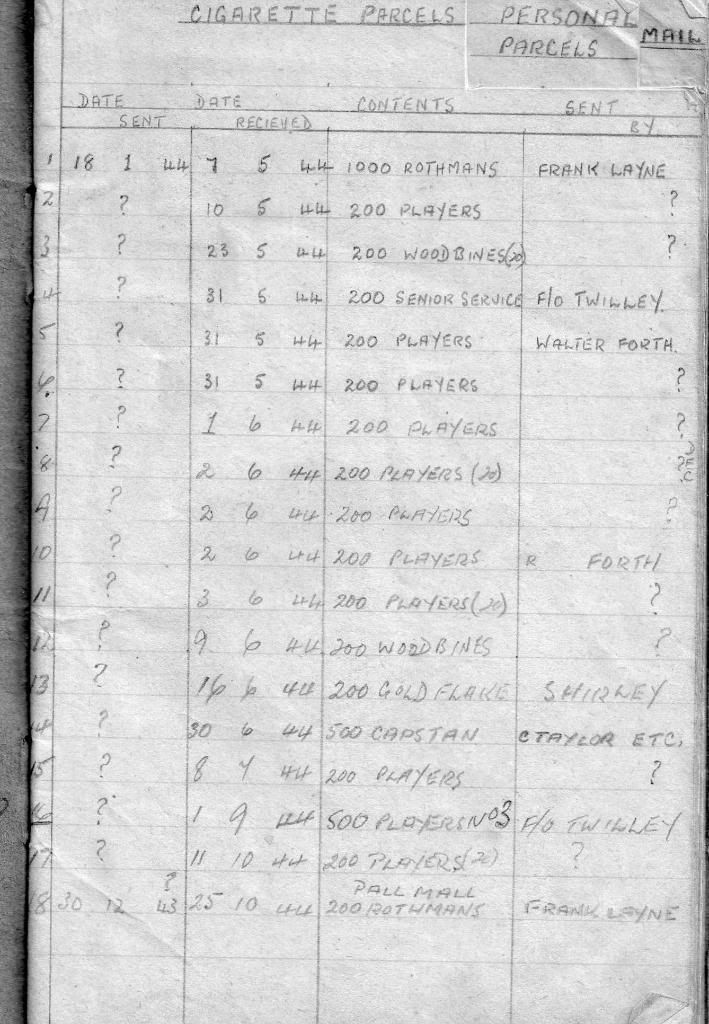 CIGARETTE PARCELS PERSONAL PARCELS MAIL
DATE SENT DATE RECIEVED CONTENTS SENT BY
1 18 1 44 7 5 44 1000 ROTHMANS FRANK LAYNE
2 ? 10 5 44 200 PLAYERS ?
3 ? 23 5 44 200 WOODBINES (20) ?
4 ? 31 5 44 200 SENIOR SERVICE F/O TWILLEY.
5 ? 31 5 44 200 PLAYERS WALTER FORTH.
6 ? 31 5 44 200 PLAYERS ?
7 ? 1 6 44 200 PLAYERS ?
8 ? 2 6 44 200 PLAYERS (20) ?
9 ? 2 6 44 200 PLAYERS ?
10 ? 2 6 44 200 PLAYERS R FORTH
11 ? 3 6 44 200 PLAYERS (20) ?
12 ? 9 6 44 200 WOODBINES ?
13 ? 16 6 44 200 GOLD FLAKE SHIRLEY
14 ? 30 6 44 500 CAPSTAN C TAYLOR ETC,
15 ? 8 7 44 200 PLAYERS ?
16 ? 1 9 44 500 PLAYERS NO3 F/O TWILLEY
17 ? 11 10 44 200 PLAYERS (20) ?
18 30 12 43 ? 25 10 44 PALL MALL 200 ROTHMANS FRANK LAYNE